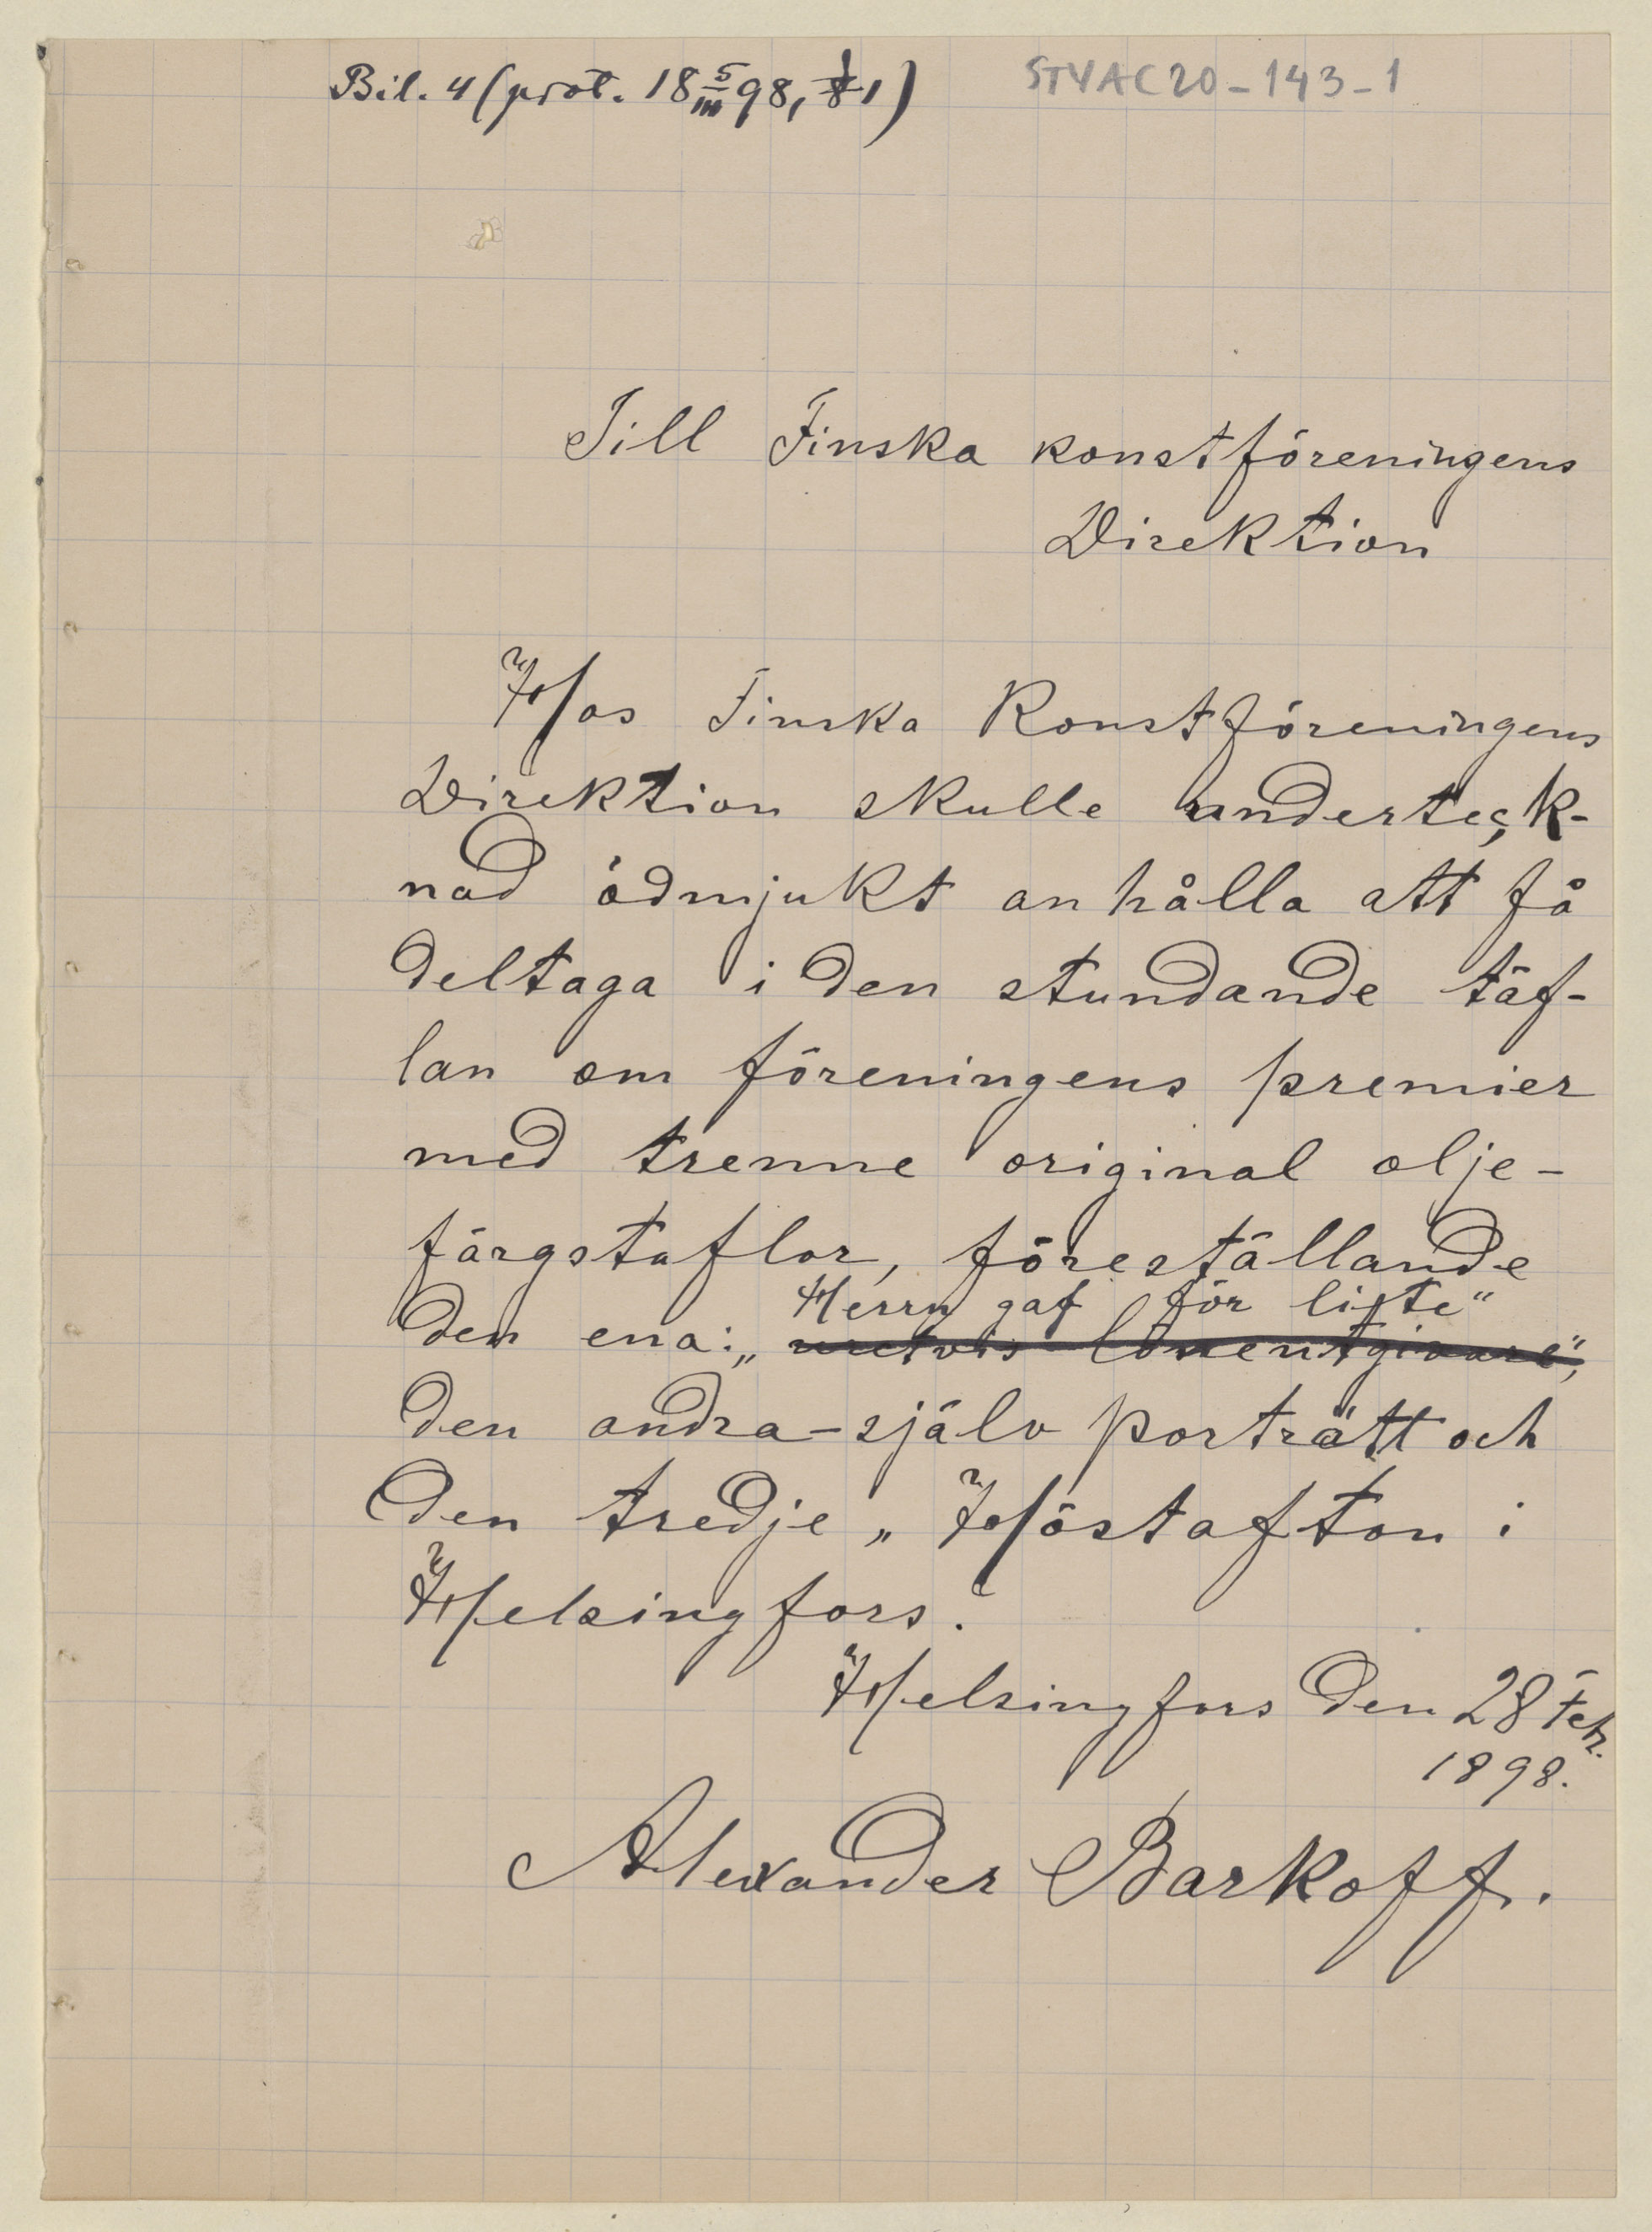 Bil. 4 (prot. 18 5/III 98, § 1)
STYAC20-143-1
Till Finska konstföreningens
Direktion
Hos Finska Konstföreningens
Direktion skulle underteck-
nad ödmjukt anhålla att få
deltaga i den stundande täf-
lan om föreningens premier
med trenne original olje-
färgstaflor, föreställande
Herrn gaf för lifte"
den ena: „
den andra - själv porträtt och
den tredje „Höstafton i
Helsingfors."
Helsingfors den 28 Feb.
1898.
Alexander Barkoff.